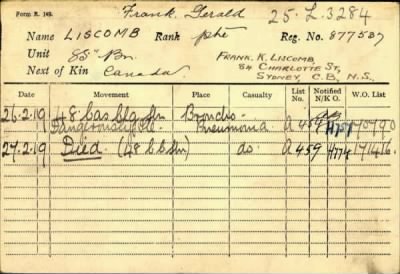 Form R. 149.
Frank Gerald
25-L.3284
Name LISCOMB Rank pte Reg. No. 877537
Unit 85" Bn.
Next of Kin Canada
FRANK. K. LISCOMB,
84 CHARLOTTE ST,
SYDNEY, C.B, N.S,
Date Movement Place Casualty List No. Notified N/K O. W.O. List
26.2.19 48 Cas Clg Stn Broncho- A459 H751 170790
Dangerously ill Pneumonia
27.2.19 Died (48 CC Stn) do. A459 H774 171416